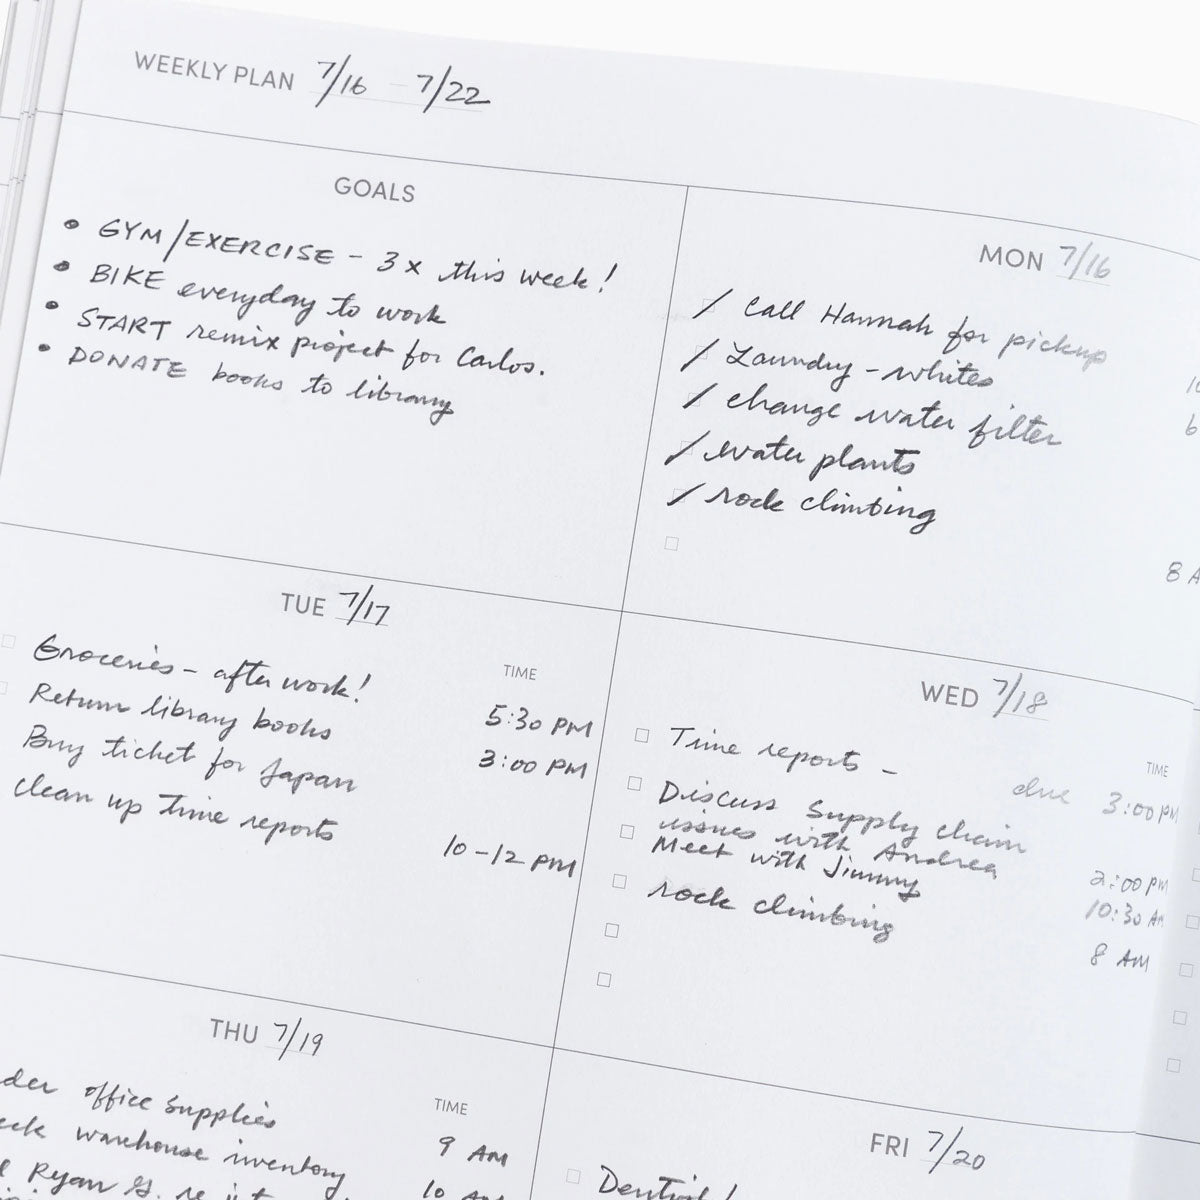 WEEKLY PLAN 7/16 - 7/22
GOALS
• GYM/EXERCISE - 3x this week!
• BIKE everyday to work
• START remix project for Carlos.
• DONATE books to library
MON 7/16
/ Call Hannah for pickup
/ Laundry - whites
/ change water filter
/ water plants
/ rock climbing
8 A
TUE 7/17
TIME
Groceries - after work! 5:30 PM
Return library books 3:00 PM
Buy ticket for Japan
clean up time reports 10-12 PM
WED 7/18
TIME
Time reports - due 3:00 PM
Discuss supply chain
issues with Andrea 2:00 PM
Meet with Jimmy 10:30 AM
rock climbing 8 AM
THU 7/19
TIME
der office supplies 9 AM
eck warehouse inventory 10 AM
Ryan G. re
FRI 7/20